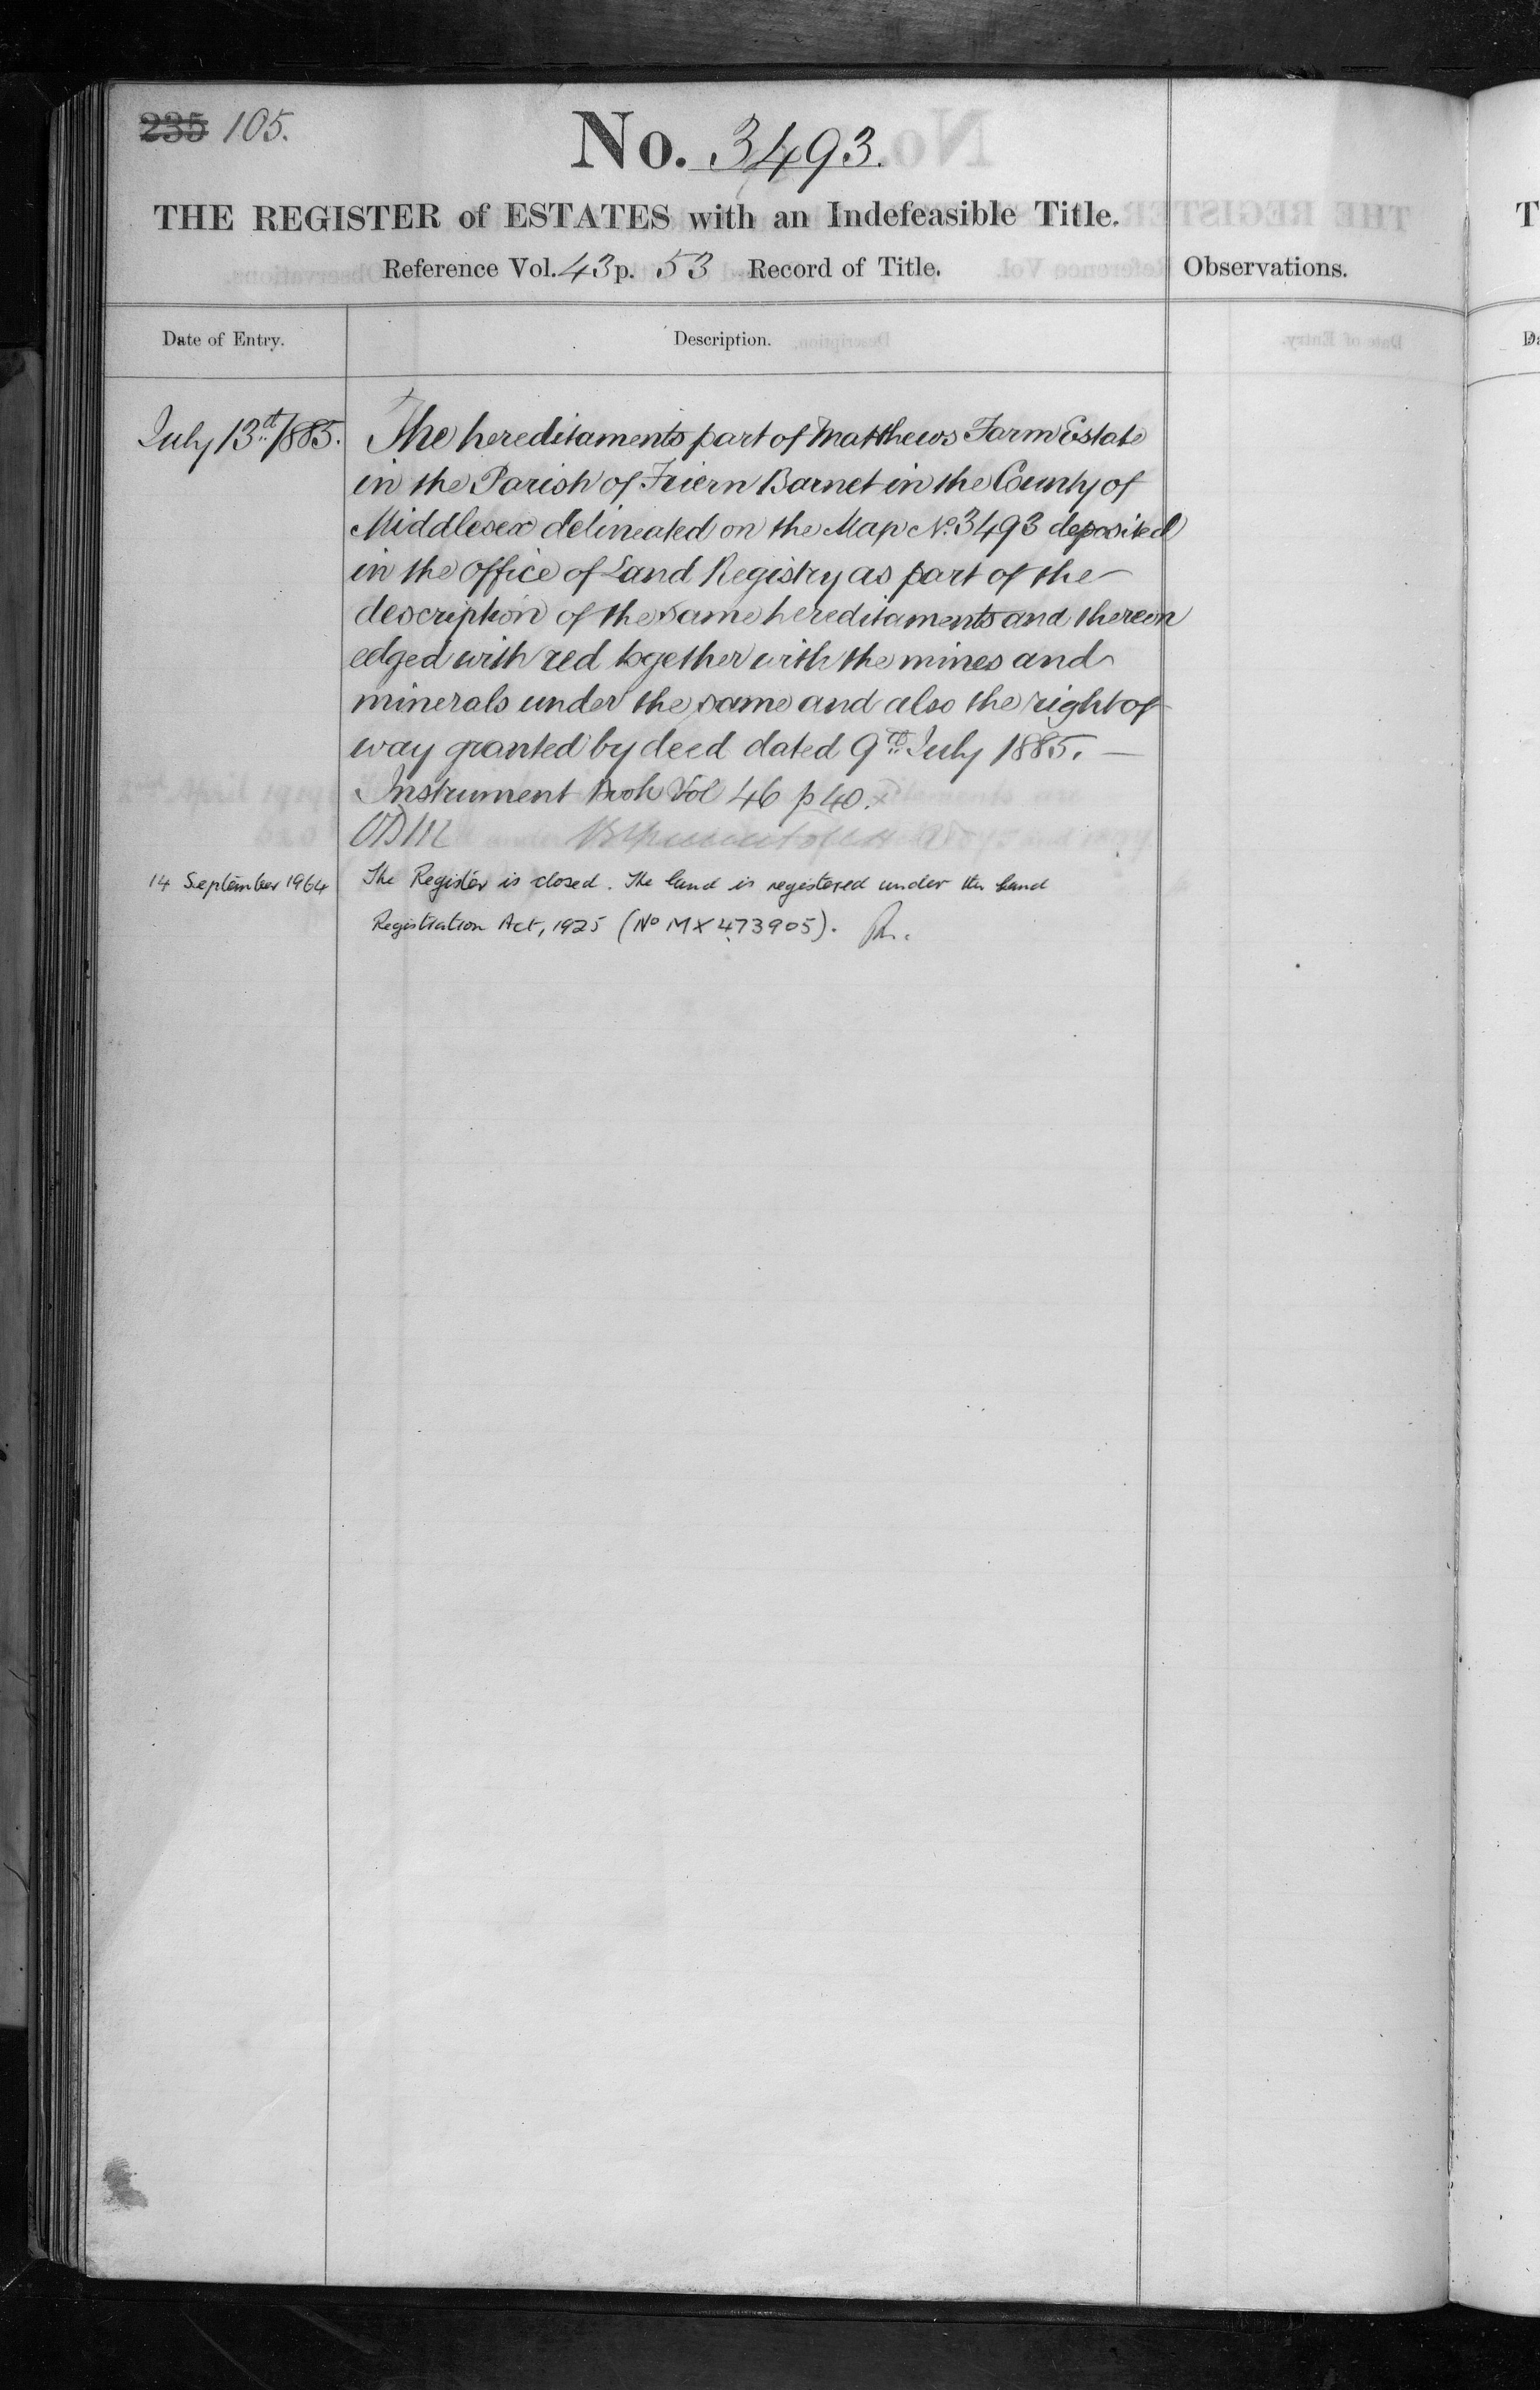 235 105.
No. 3493.
THE REGISTER of ESTATES with an Indefeasible Title.
Reference Vol. 43 p. 53 Record of Title.
Observations.
Date of Entry.
Description.
July 13th 1885.
The hereditaments part of Matthews Farm Estate
in the Parish of Friern Barnet in the County of
Middlesex delineated on the Map No. 3493 deposited
in the office of Land Registry as part of the
description of the same hereditaments and thereon
edged with red together with the mines and
minerals under the same and also the right of
way granted by deed dated 9th July 1885. —
Instrument Book Vol 46 p 40.
14 September 1964
The Register is closed. The land is registered under the Land
Registration Act, 1925 (No MX 473905).